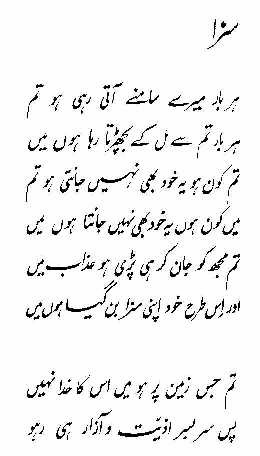 سزا
ہر بار میرے سامنے آتی رہی ہو تم
ہر بار تم سے مل کے بچھڑتا رہا ہوں میں
تم کون ہو یہ خود بھی نہیں جانتی ہو تم
میں کون ہوں یہ خود بھی نہیں جانتا ہوں میں
تم مجھ کو جان کر ہی پڑی ہو عذاب میں
اور اس طرح خود اپنی سزا بن گیا ہوں میں
تم جس زمین پر ہو میں اس کا خدا نہیں
پس سر بسر اذیت و آزار ہی رہو